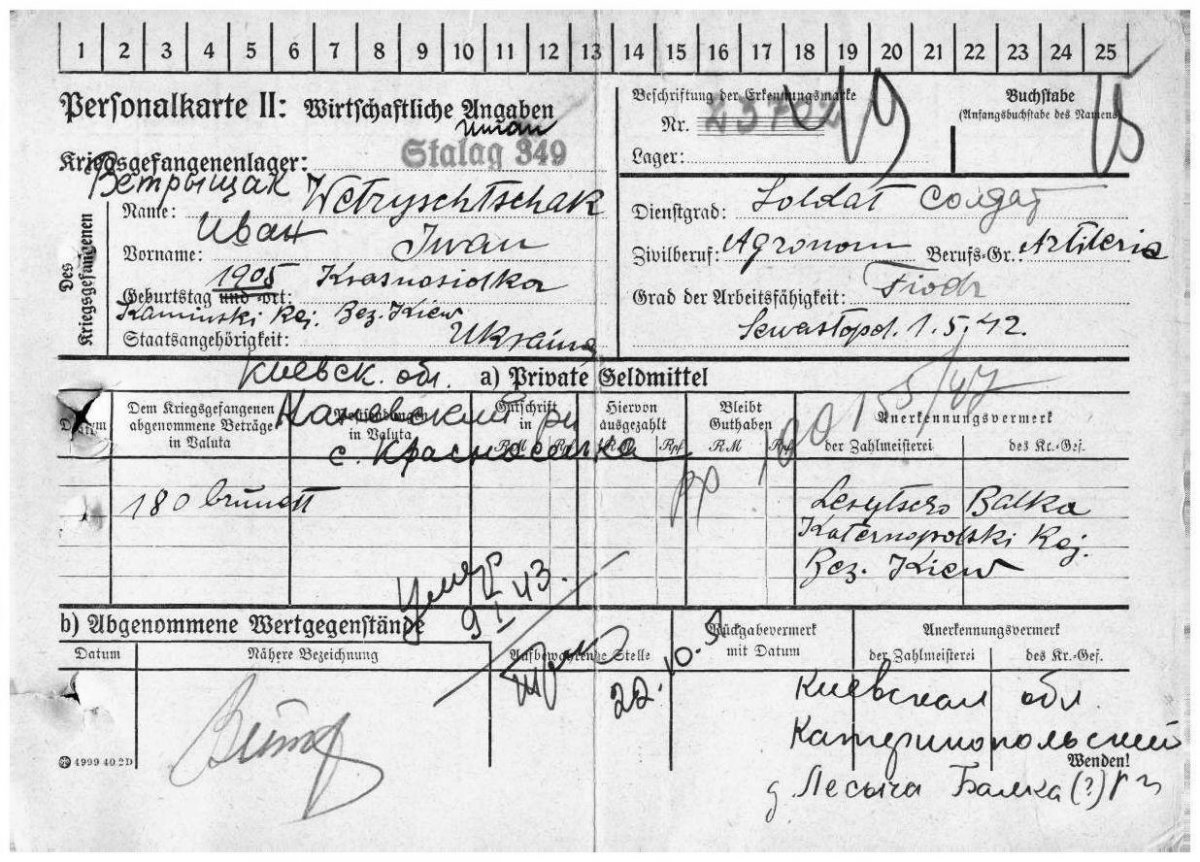 1 2 3 4 5 6 7 8 9 10 11 12 13 14 15 16 17 18 19 20 21 22 23 24 25
Personalkarte II: Wirtschaftliche Angaben
Beschriftung der Erkennungsmarke
Nr.
Lager:
Buchstabe
(Anfangsbuchstabe des Namens)
19
Kriegsgefangenenlager: Stalag 349
Uman
Des Kriegsgefangenen
Ветрыщак
Name: Wetryschtschak
Иван
Vorname: Iwan
1905 Krasnosiolka
Geburtstag und -ort:
Kaminski Rej. Bez. Kiew
Staatsangehörigkeit: Ukraina
Dienstgrad: Soldat Солдат
Zivilberuf: Agronom Berufs-Gr.: Artileria
Grad der Arbeitsfähigkeit: Fiodr
Sewastopol. 1.5.42.
Киевск. обл.
a) Private Geldmittel
Datum
Dem Kriegsgefangenen abgenommene Beträge in Valuta
in Valuta
Gutschrift in
RM Rpf
Hiervon ausgezahlt
RM Rpf
Bleibt Guthaben
RM Rpf
Anerkennungsvermerk
der Zahlmeisterei
des Kr.-Gef.
Каневский
с. Красноселка
180 brünett
Lesytscho Balka
Katernopolski Rej.
Bez. Kiew
Умер
9 I 43.
b) Abgenommene Wertgegenstände
Datum
Nähere Bezeichnung
Aufbewahrende Stelle
Rückgabevermerk mit Datum
Anerkennungsvermerk
der Zahlmeisterei
des Kr.-Gef.
22.10.
Киевская обл.
Катеринопольский
Wenden!
д Лесыча Балка (?)
4999 40 2D